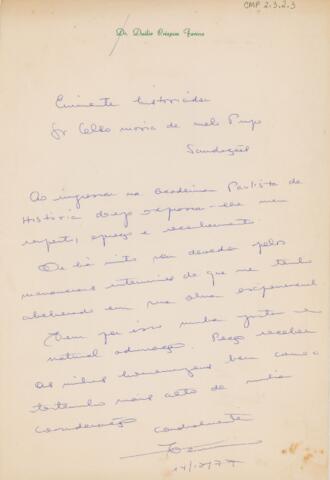 CMP 2.3.2.3
Dr. Duilio Crispim Farina
Eminente historiador
Sr Celso maria de mello Pupo
Saudações
Ao ingressar na academia Paulista de
História desejo expressar-lhe meu
respeito, apreço e acatamento.
De há muito sou devedor pelos
ensinamentos de que me tenho
em sua obra
Vem por isso minha justa e
natural admiração. Peço receber
as minhas homenagens bem como o
testemunho mais alto de minha
consideração cordialmente
14/12/77